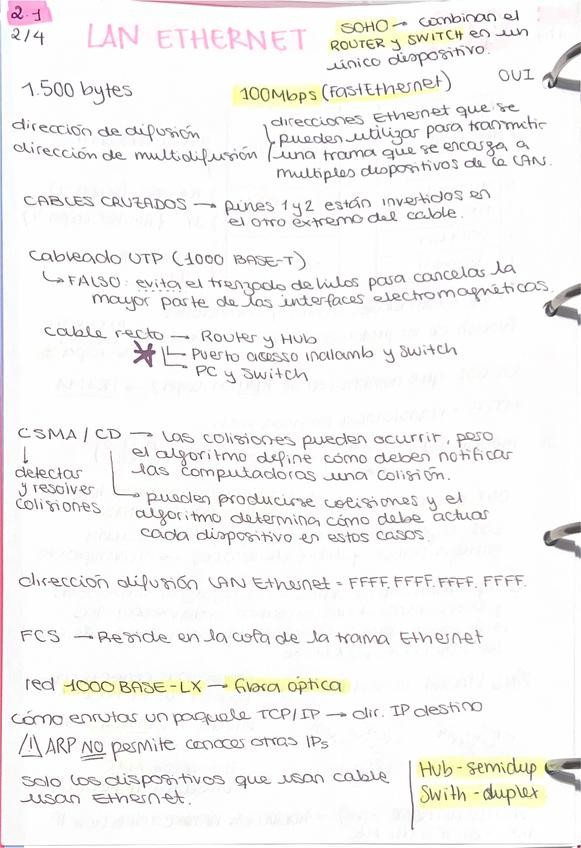 2.1
2/4
LAN ETHERNET
SOHO → combinan el
ROUTER y SWITCH en un
único dispositivo.
1.500 bytes
100Mbps (FastEthernet)
OUI
dirección de difusión
dirección de multidifusión
direcciones Ethernet que se
pueden utilizar para transmitir
una trama que se encarga a
multiples dispositivos de la LAN.
CABLES CRUZADOS → pines 1 y 2 están invertidos en
el otro extremo del cable.
cableado UTP (1000 BASE-T)
↳ FALSO: evita el trenzado de hilos para cancelar la
mayor parte de las interfaces electromagnéticas.
cable recto → Router y Hub
Puerto acceso inalamb y Switch
PC y Switch
CSMA / CD → las colisiones pueden ocurrir, pero
el algoritmo define cómo deben notificar
las computadoras una colisión.
↓
detectar
y resolver
colisiones
→ pueden producirse colisiones y el
algoritmo determina cómo debe actuar
cada dispositivo en estos casos.
dirección difusión LAN Ethernet = FFFF. FFFF. FFFF. FFFF.
FCS → Reside en la cola de la trama Ethernet
red 1000 BASE-LX → fibra óptica
cómo enrutar un paquete TCP/IP → dir. IP destino
⚠ ARP NO permite conocer otras IPs
solo los dispositivos que usan cable
usan Ethernet.
Hub - semidup
Swith - duplex